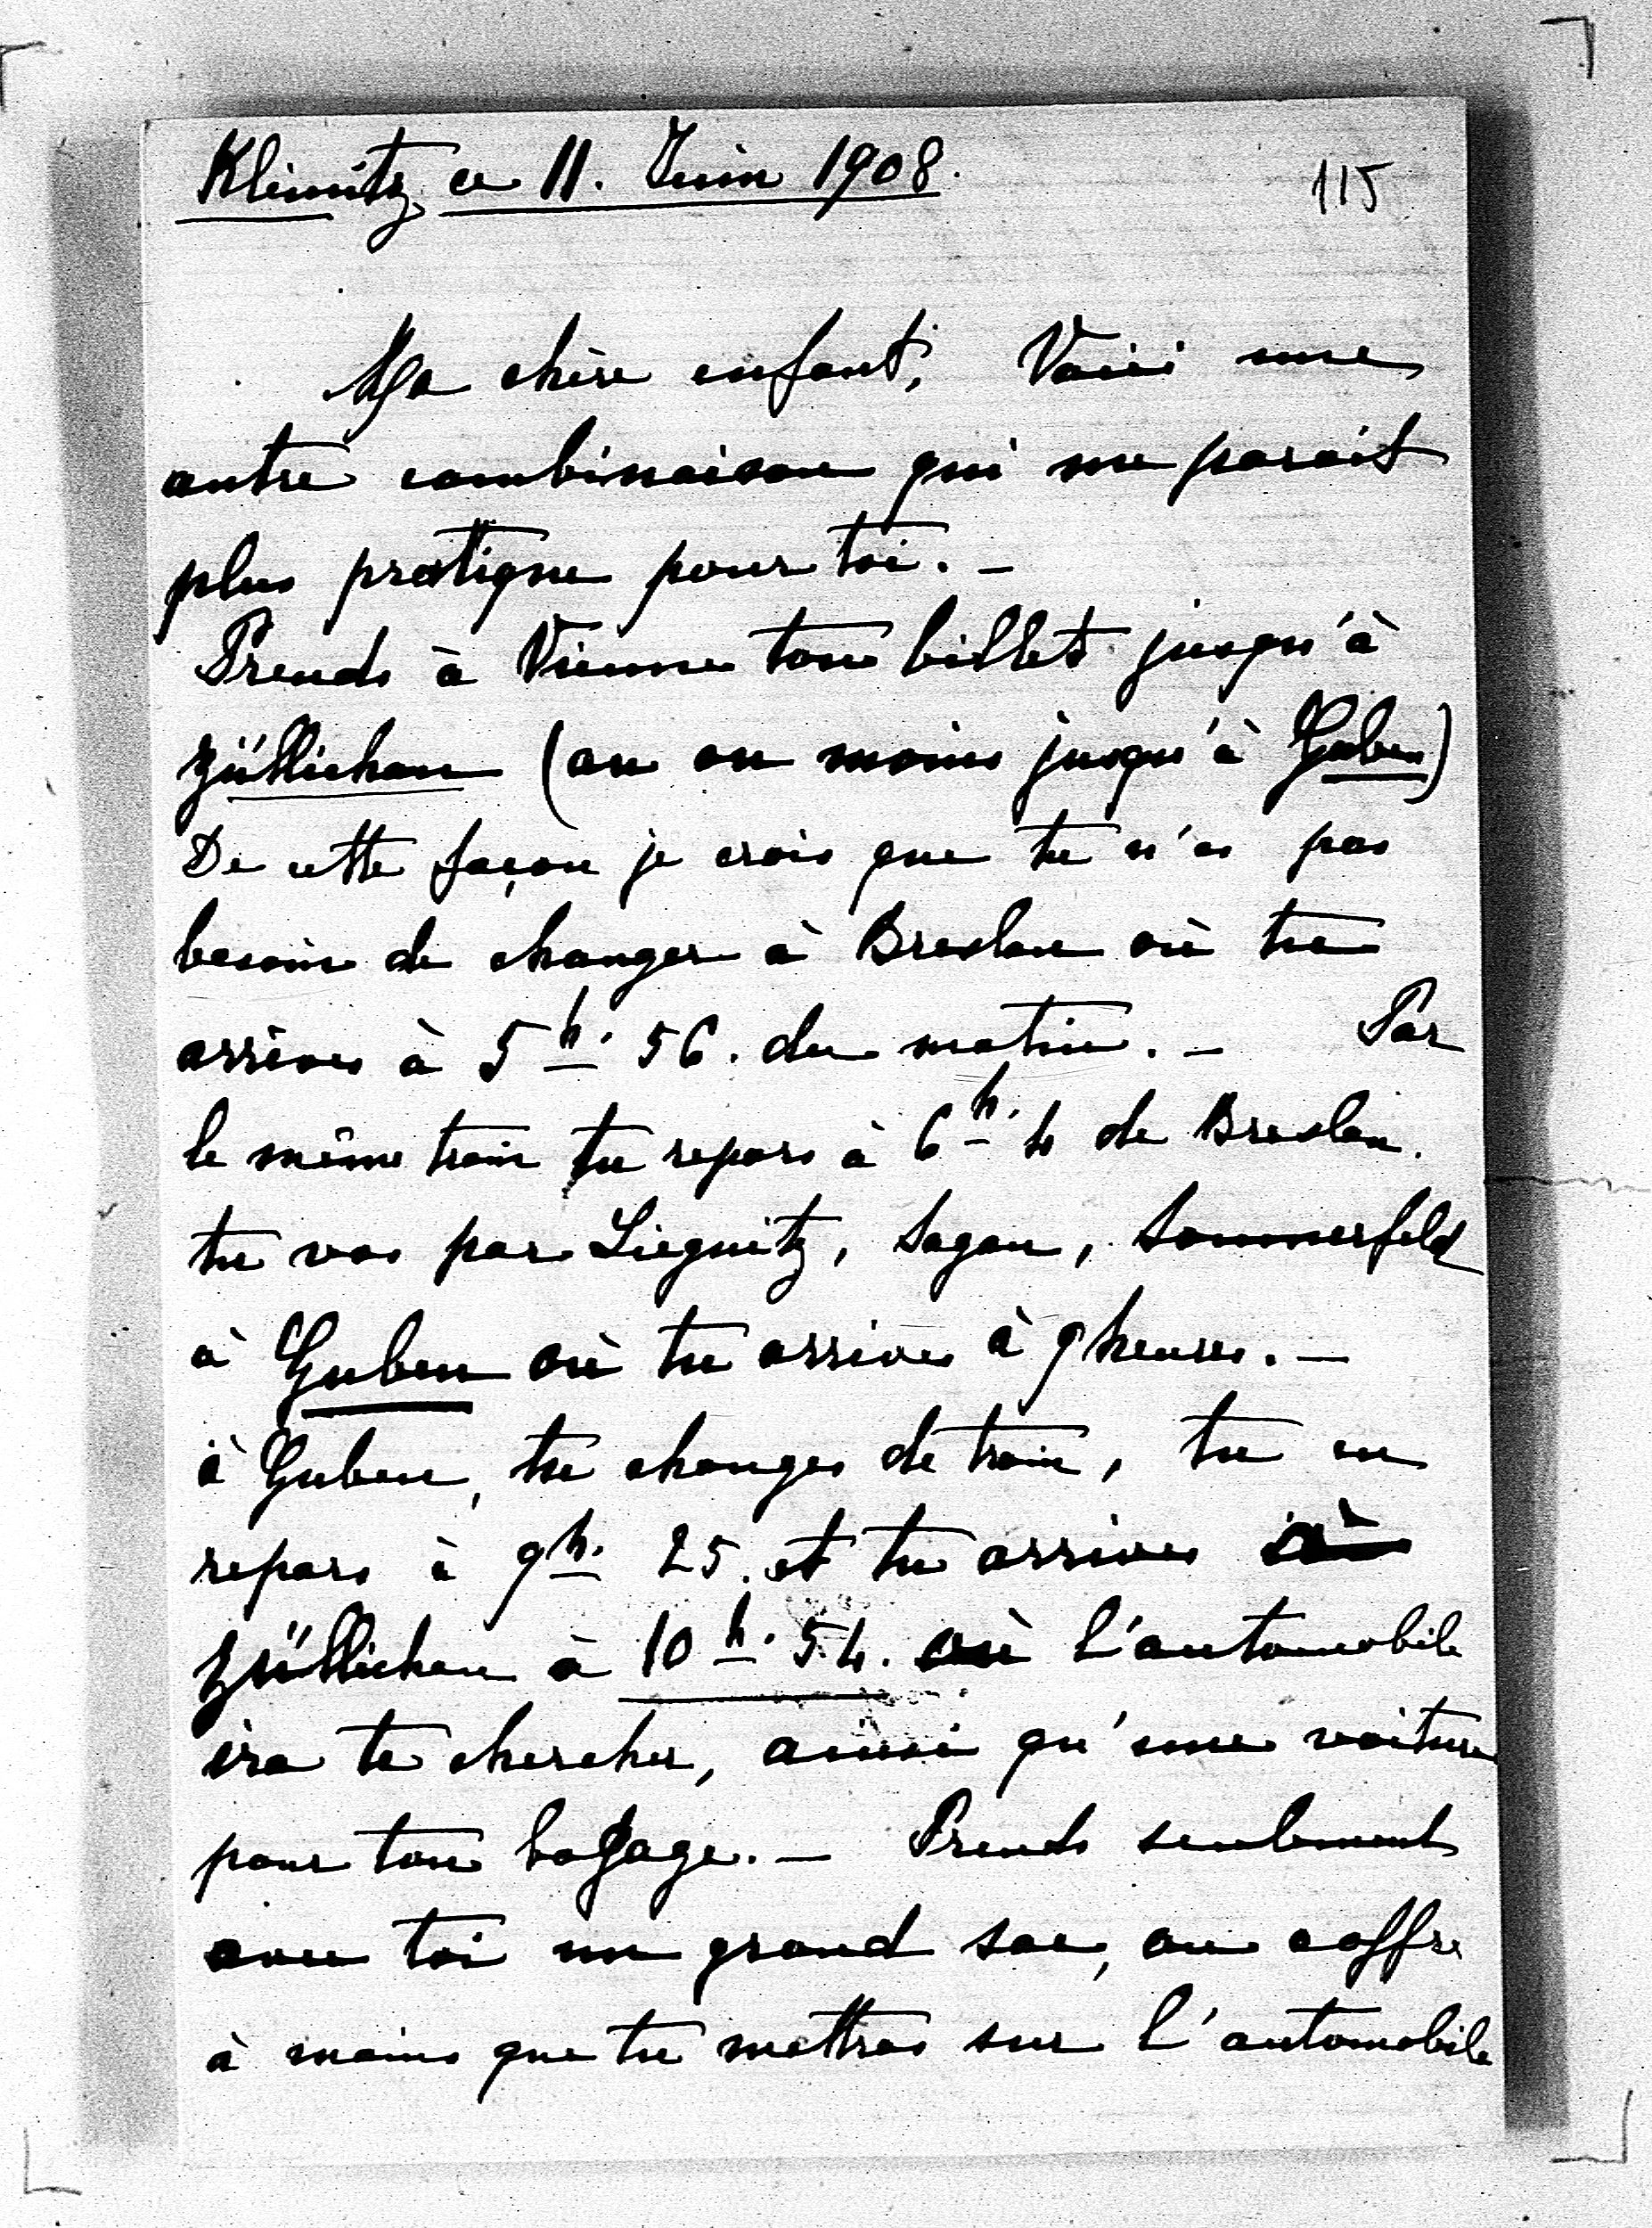 Klemitz, ce 11. Juin 1908.
115
Ma chère enfant, Voici une
autre combinaison qui me parait
plus pratique pour toi. –
Prends à Vienne ton billet jusqu'à
Züllichau (ou au moins jusqu'à Guben)
De cette façon je crois que tu n'as pas
besoin de changer à Breslau où tu
arrives à 5 h. 56. du matin. – Par
le même train tu repars à 6 h. 4 de Breslau.
tu vas par Liegnitz, Sagan, Sommerfeld
à Guben où tu arrives à 9 heures. –
à Guben, tu changes de train, tu en
repars à 9 h. 25. et tu arrives à
Züllichau à 10 h. 54. où l'automobile
ira te chercher, ainsi qu'une voiture
pour ton bagage. – Prends seulement
avec toi un grand sac, ou coffre
à mains que tu mettras sur l'automobile